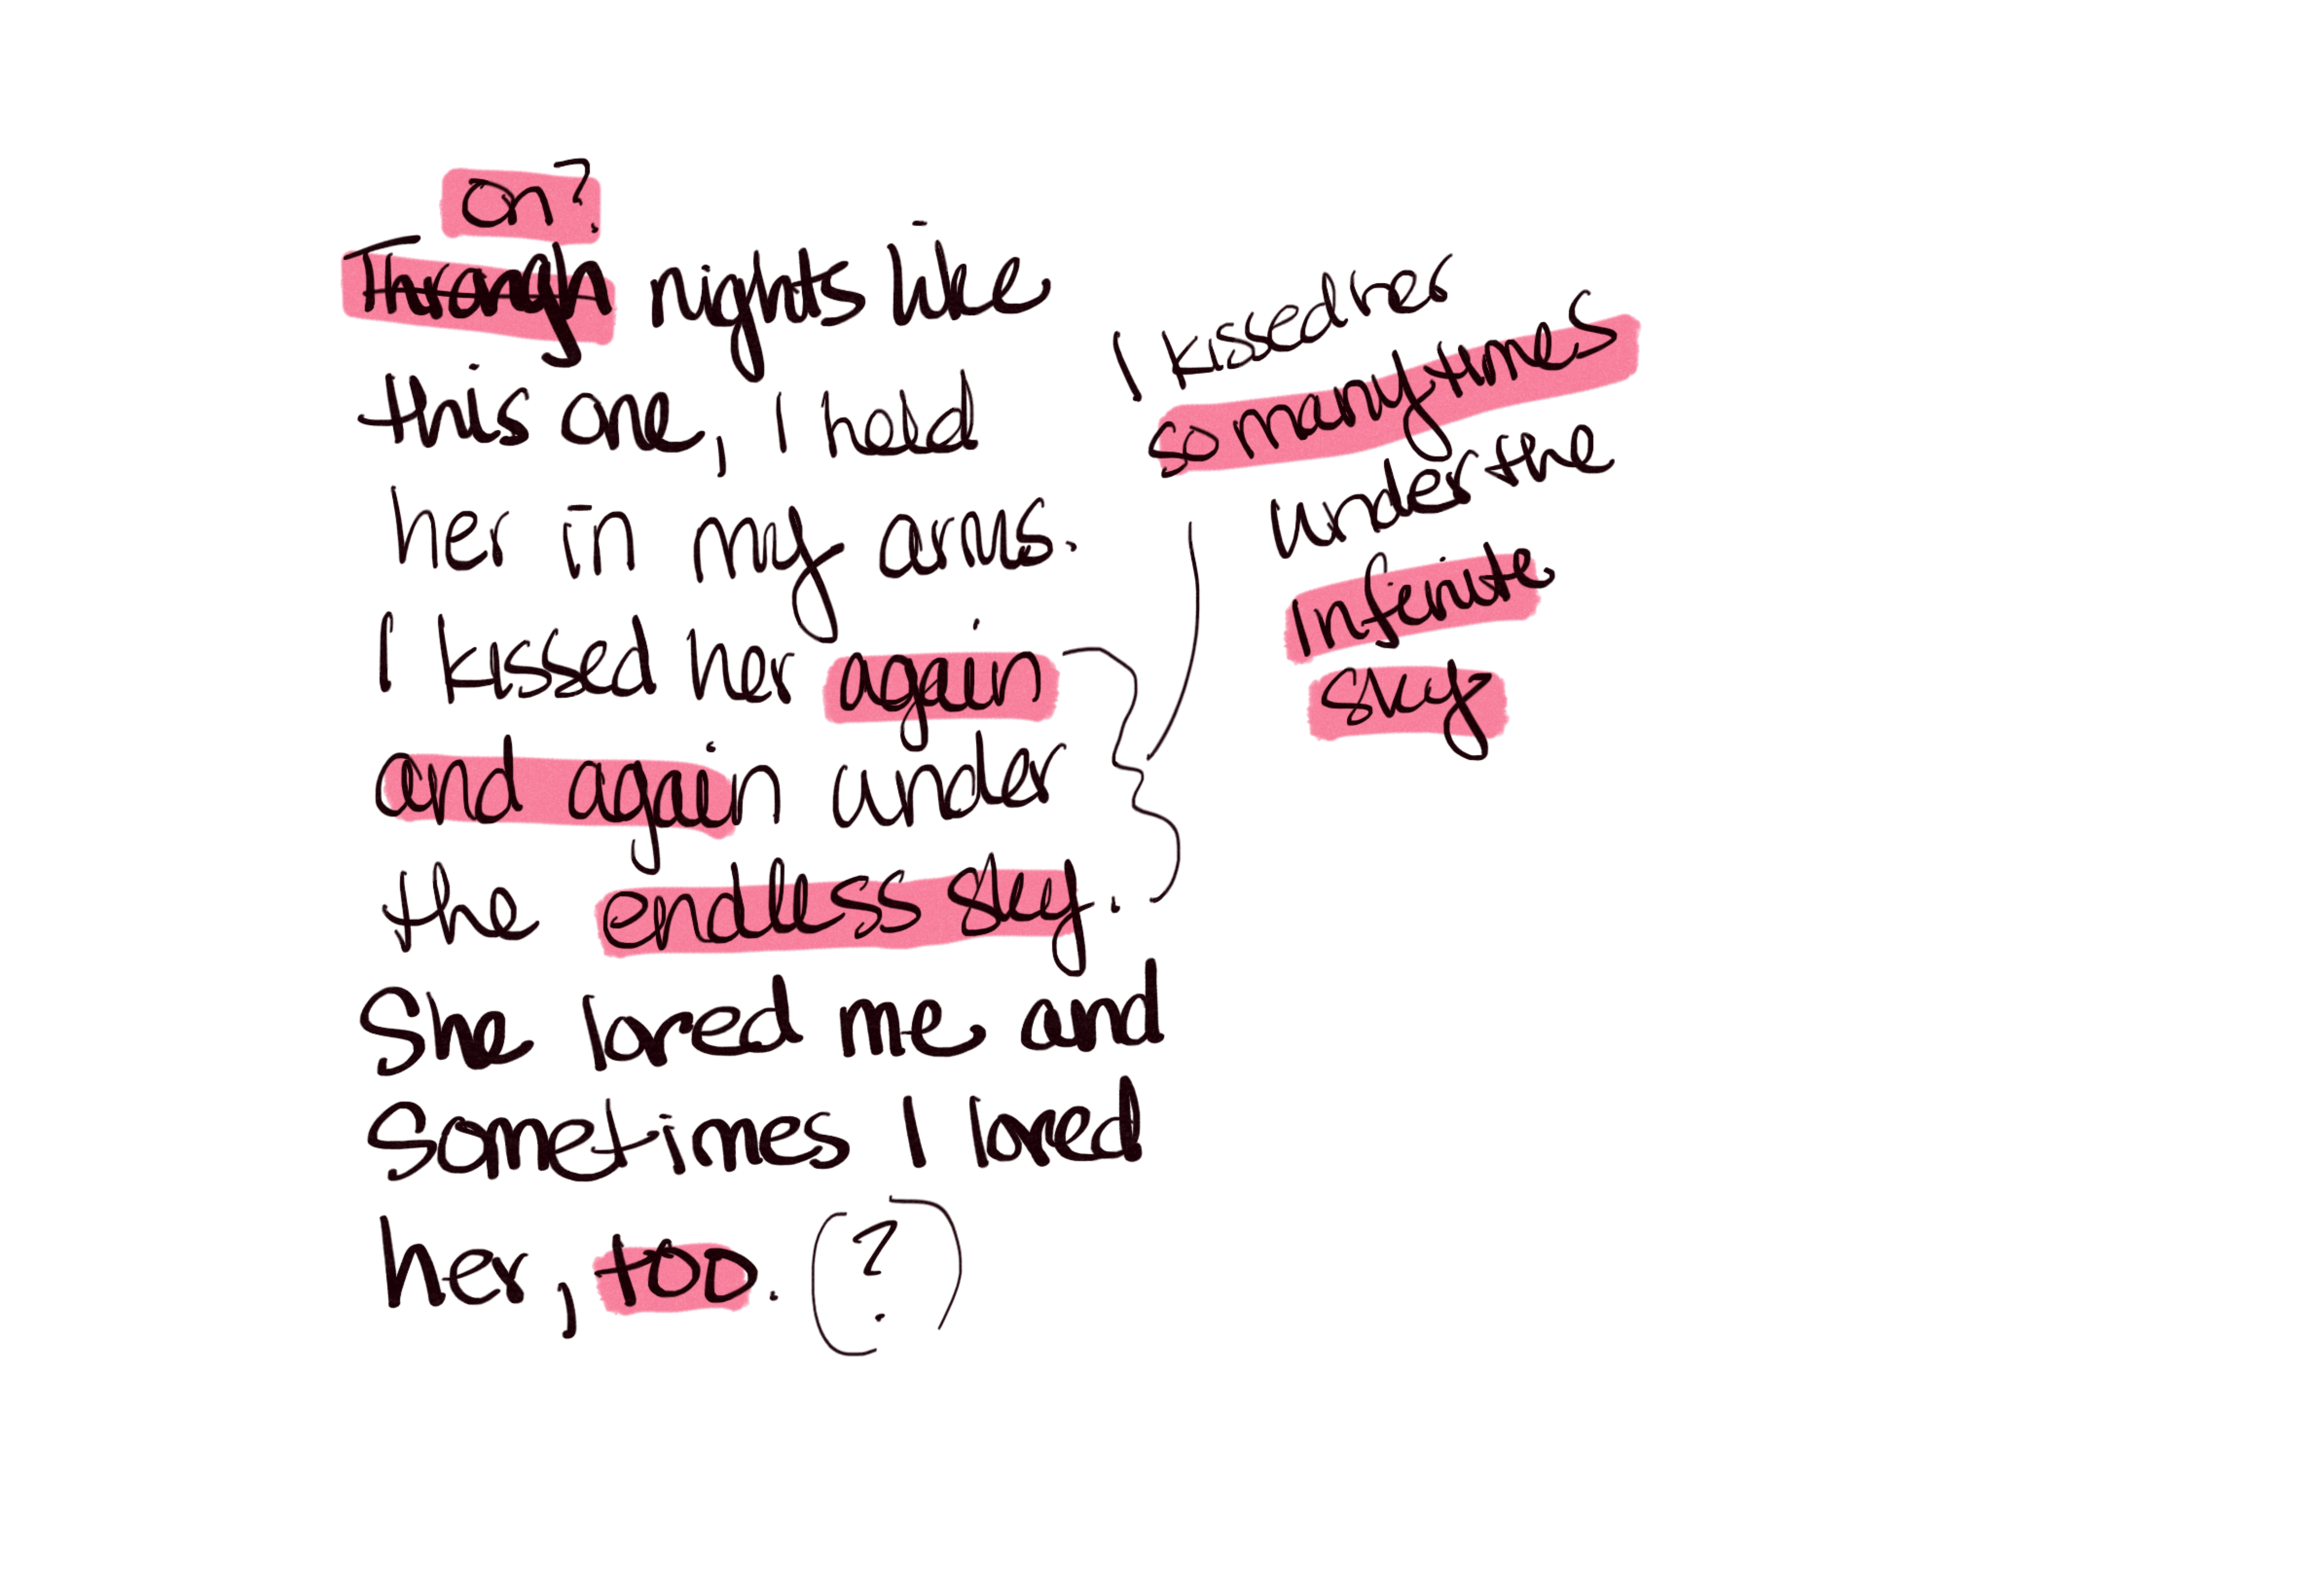 on?
Through nights like
this one, I held
her in my arms.
I kissed her again
and again under
the endless sky.
She loved me and
Sometimes I loved
her, too. (?)
I kissed her
so many times
under the
Infinite
sky